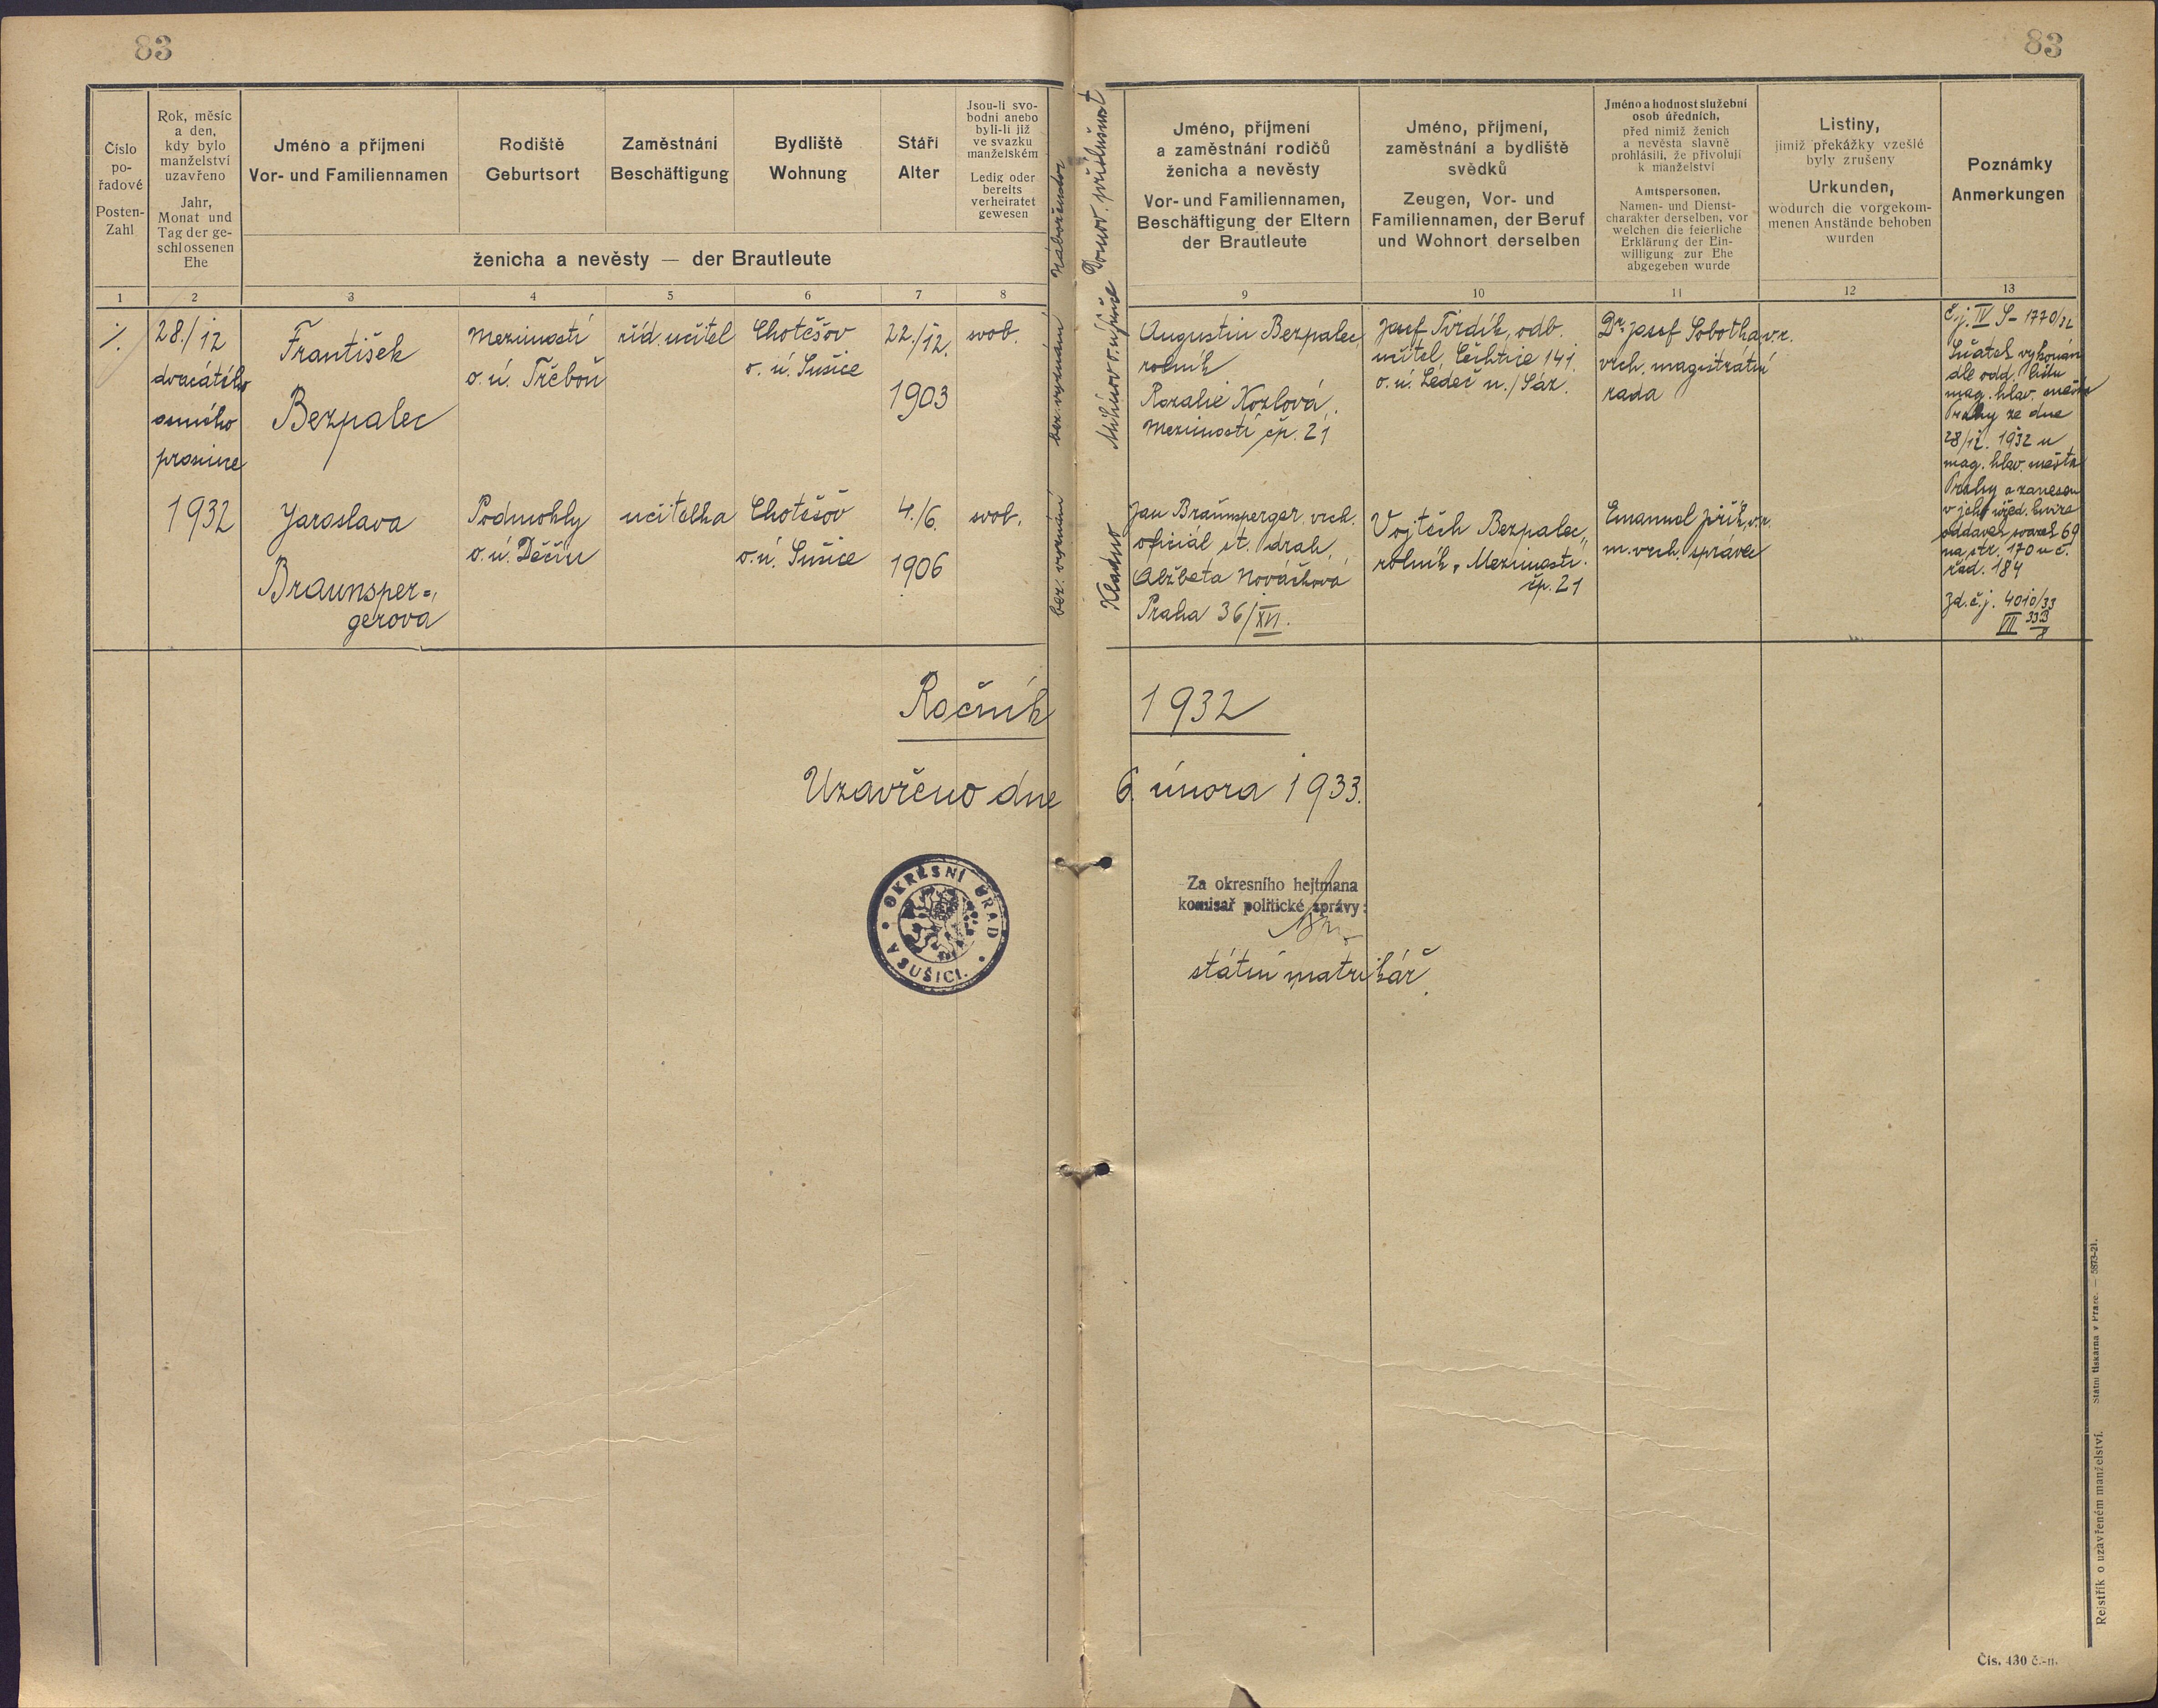 83
83
Číslo
po-
řadové
Posten-
Zahl
Rok, měsíc
a den,
kdy bylo
manželství
uzavřeno
Jahr,
Monat und
Tag der ge-
schlossenen
Ehe
Jméno a příjmení
Vor- und Familiennamen
Rodiště
Geburtsort
Zaměstnání
Beschäftigung
Bydliště
Wohnung
Stáří
Alter
Jsou-li svo-
bodni anebo
byli-li již
ve svazku
manželském
Ledig oder
bereits
verheiratet
gewesen
ženicha a nevěsty — der Brautleute
Náboženství
Domov. příslušnost
Jméno, příjmení
a zaměstnání rodičů
ženicha a nevěsty
Vor- und Familiennamen,
Beschäftigung der Eltern
der Brautleute
Jméno, příjmení,
zaměstnání a bydliště
svědků
Zeugen, Vor- und
Familiennamen, der Beruf
und Wohnort derselben
Jméno a hodnost služební
osob úředních,
před nimiž ženich
a nevěsta slavně
prohlásili, že přivolují
k manželství
Amtspersonen,
Namen- und Dienst-
charakter derselben, vor
welchen die feierliche
Erklärung der Ein-
willigung zur Ehe
abgegeben wurde
Listiny,
jimiž překážky vzešlé
byly zrušeny
Urkunden,
wodurch die vorgekom-
menen Anstände behoben
wurden
Poznámky
Anmerkungen
1 2 3 4 5 6 7 8 9 10 11 12 13
1.
28./12
dvacátého
osmého
prosince
1932
František
Bezpalec
Mezimostí
o.ú. Třeboň
říd. učitel
Chotěšov
o. ú. Sušice
22./12.
1903
svob.
bez vyznání
Augustin Bezpalec,
rolník
Rozalie Kozlová,
Mezimostí čp. 21
Josef Tvrdík, odb.
učitel, Čechtice 141
o. ú. Ledeč n./Sáz.
Dr. Josef Sobotka v.r.
vrch. magistrátní
rada
č.j. IV S - 1770/32
Sňatek vykonán
dle odd. listu
mag. hlav. města
Prahy ze dne
28/12. 1932 u
mag. hlav. města
Prahy a zanesen
v jeho úřed. knize
oddavek svazek 69
na str. 170 u č.
řad. 184
Zd. č.j. 4010/33
Jaroslava
Braunsper-
gerova
Podmokly
o.ú. Děčín
učitelka
Chotěšov
o.ú. Sušice
4./6.
1906
svob.
bez vyznání
Kladno
Jan Braunsperger, vrch.
oficiál st. drah,
Alžběta Nováčková
Praha 36/XVI.
Vojtěch Bezpalec,
rolník, Mezimostí
čp. 21
Emanuel
m. vrch. správce
Ročník 1932
Uzavřeno dne 6. února 1933.
OKRESNÍ ÚŘAD
V SUŠICI.
Za okresního hejtmana
komisař politické správy:
státní matrikář.
Rejstřík o uzavřeném manželství. Státní tiskárna v Praze. — 5873-21.
Čís. 430 č.-n.